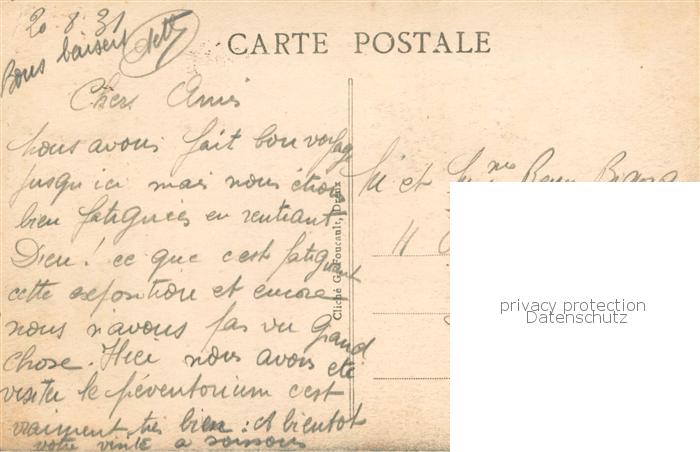 20.8.31
Bons baisers
CARTE POSTALE
Chers Amis
Nous avons fait bon voyage
jusqu ici mais nous étions
bien fatiguées en rentrant
Dieu! ce que c'est fatigant
cette exposition et encore
nous n'avons pas vu grand
chose. Hier nous avons été
visiter le préventorium c'est
vraiment très bien : et bientot
votre visite a soissons
Cliché G. Foucault, Dreux
M et Mme
11
privacy protection
Datenschutz